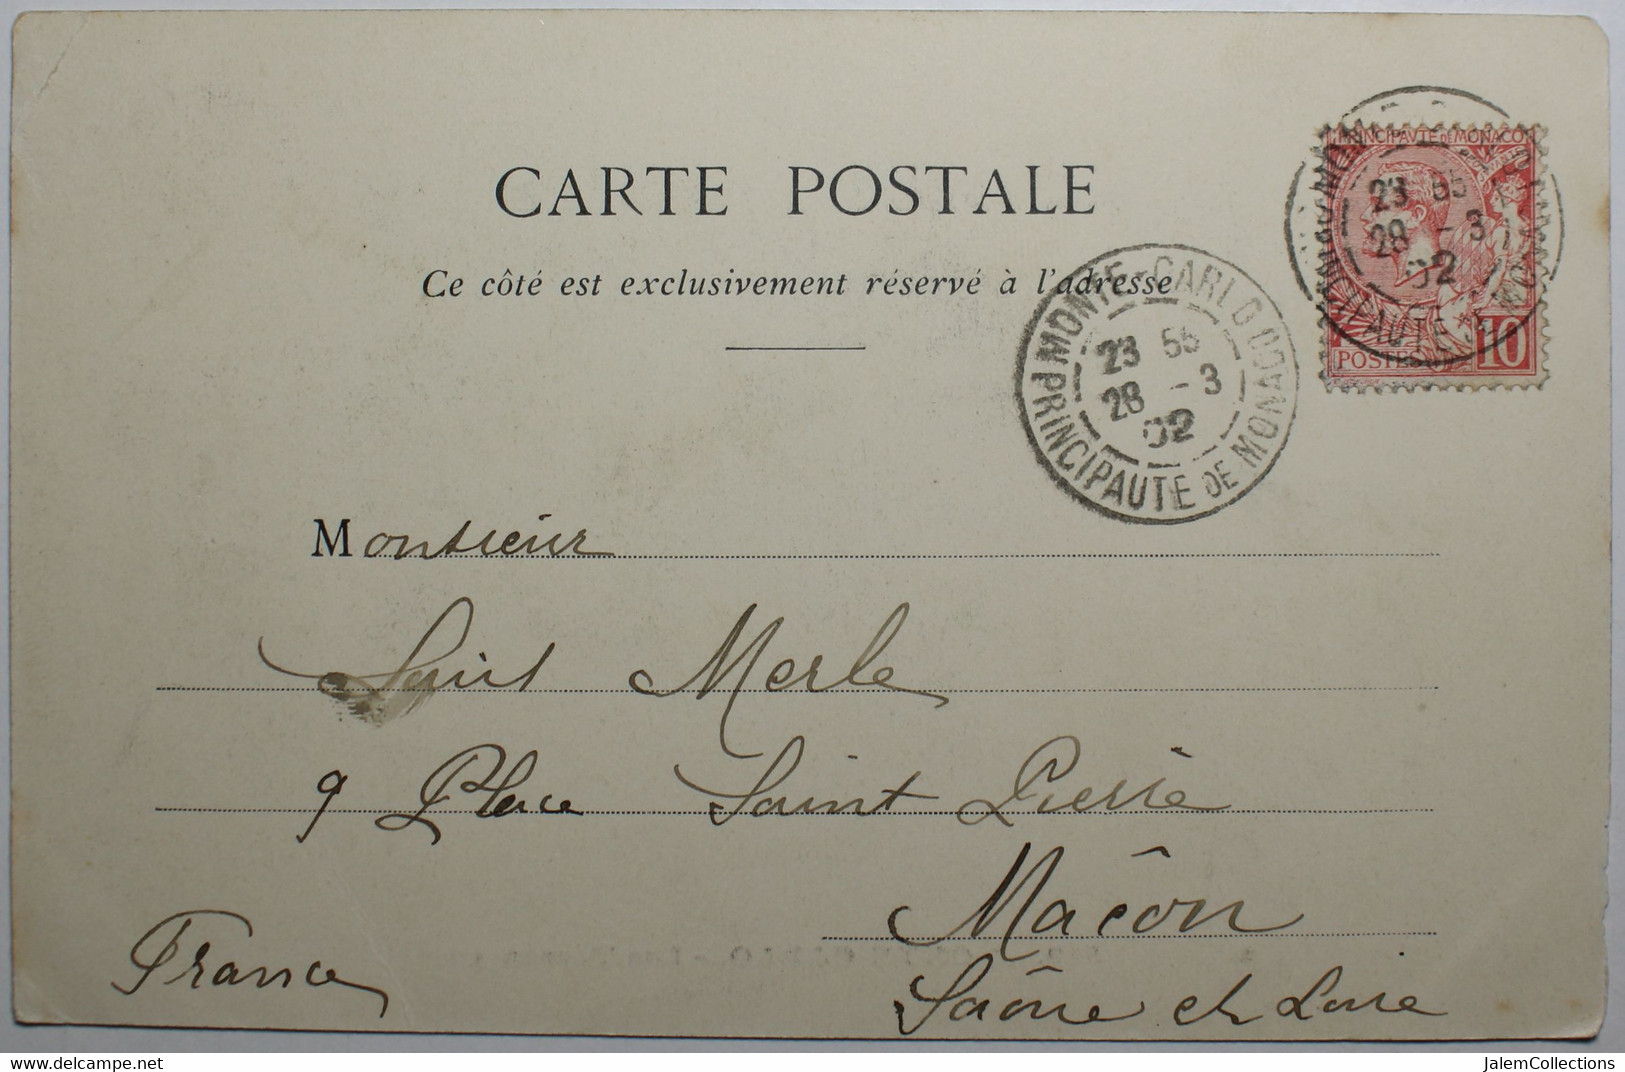 CARTE POSTALE
Ce côté est exclusivement réservé à l'adresse
PRINCIPAVTE DE MONACO
23 55
28 - 3
02
POSTES 10
MONTE-CARLO
23 55
28 - 3
02
PRINCIPAUTE DE MONACO
Monsieur
Saint Merle
9 Place Saint Pierre
Macôn
France
Saône et Loire
delcampe.net
JalemCollections